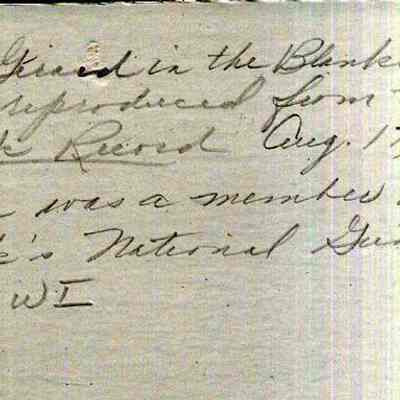 Girard in the Blank
reproduced from
k Record Aug. 17,
was a member
k's National Gu
WI